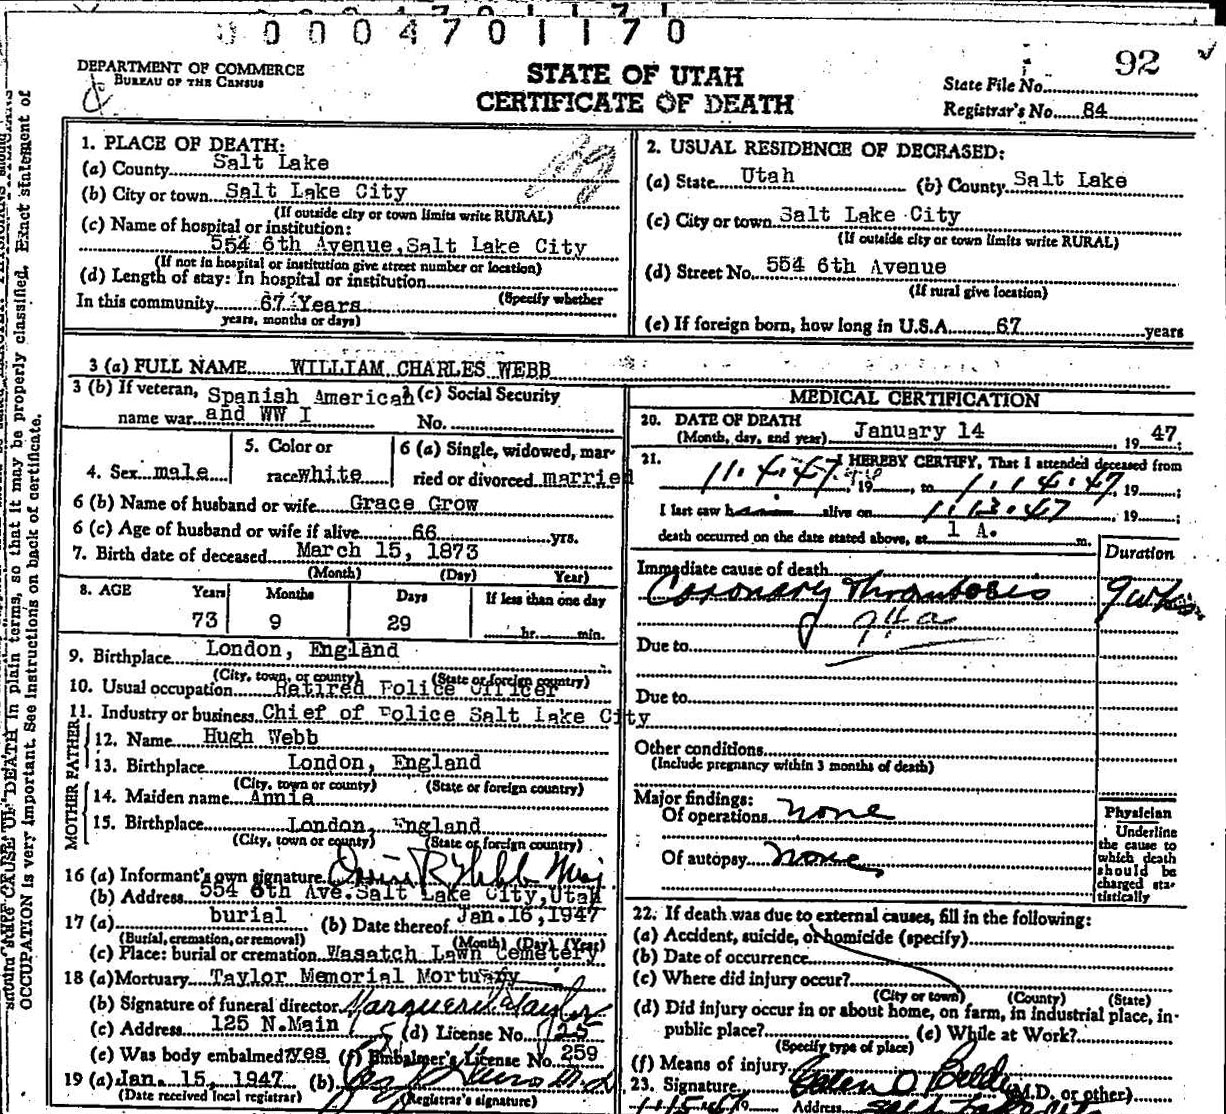 0 0 0 0 4 7 0 1 1 7 0
92
DEPARTMENT OF COMMERCE
BUREAU OF THE CENSUS
STATE OF UTAH
CERTIFICATE OF DEATH
State File No.
Registrar's No. 84
1. PLACE OF DEATH:
(a) County Salt Lake
(b) City or town Salt Lake City
(If outside city or town limits write RURAL)
(c) Name of hospital or institution:
554 6th Avenue, Salt Lake City
(If not in hospital or institution give street number or location)
(d) Length of stay: In hospital or institution
In this community 67 Years (Specify whether
years, months or days)
2. USUAL RESIDENCE OF DECEASED:
(a) State Utah (b) County Salt Lake
(c) City or town Salt Lake City
(If outside city or town limits write RURAL)
(d) Street No. 554 6th Avenue
(If rural give location)
(e) If foreign born, how long in U.S.A. 67 years
3 (a) FULL NAME WILLIAM CHARLES WEBB
3 (b) If veteran, Spanish American (c) Social Security
name war and WW I No.
4. Sex male
5. Color or
race white
6 (a) Single, widowed, mar-
ried or divorced married
6 (b) Name of husband or wife Grace Grow
6 (c) Age of husband or wife if alive 66 yrs.
7. Birth date of deceased March 15, 1873
(Month) (Day) Year)
8. AGE Years Months Days If less than one day
73 9 29 hr. min.
9. Birthplace London, England
(City, town, or county) (State or foreign country)
10. Usual occupation Retired Police Officer
11. Industry or business Chief of Police Salt Lake City
FATHER
12. Name Hugh Webb
13. Birthplace London, England
(City, town or county) (State or foreign country)
MOTHER
14. Maiden name Annie
15. Birthplace London, England
(City, town or county) (State or foreign country)
16 (a) Informant's own signature
(b) Address 554 6th Ave. Salt Lake City, Utah
17 (a) burial (b) Date thereof Jan. 16, 1947
(Burial, cremation, or removal) (Month) (Day) (Year)
(c) Place: burial or cremation Wasatch Lawn Cemetery
18 (a) Mortuary Taylor Memorial Mortuary
(b) Signature of funeral director Marguerite Taylor
(c) Address 125 N. Main (d) License No. 25
(e) Was body embalmed? yes (f) Embalmer's License No. 259
19 (a) Jan. 15, 1947 (b)
(Date received local registrar) (Registrar's signature)
MEDICAL CERTIFICATION
20. DATE OF DEATH
(Month, day, and year) January 14 19 47;
21. I HEREBY CERTIFY, That I attended deceased from
11.4.47, 19, to 1.14.47, 19;
I last saw h alive on 1.13.47 19;
death occurred on the date stated above, at 1 A. m.
Duration
Immediate cause of death
Coronary Thrombosis 9 wks
94a
Due to
Due to
Other conditions
(Include pregnancy within 3 months of death)
Major findings:
Of operations none
Of autopsy none
Physician
Underline
the cause to
which death
should be
charged sta-
tistically
22. If death was due to external causes, fill in the following:
(a) Accident, suicide, or homicide (specify)
(b) Date of occurrence
(c) Where did injury occur?
(City or town) (County) (State)
(d) Did injury occur in or about home, on farm, in industrial place, in-
public place? (e) While at Work?
(Specify type of place)
(f) Means of injury
23. Signature (M.D. or other)
Address
OCCUPATION is very important. See instructions on back of certificate.
should state CAUSE OF DEATH in plain terms, so that it may be properly classified. Exact statement of